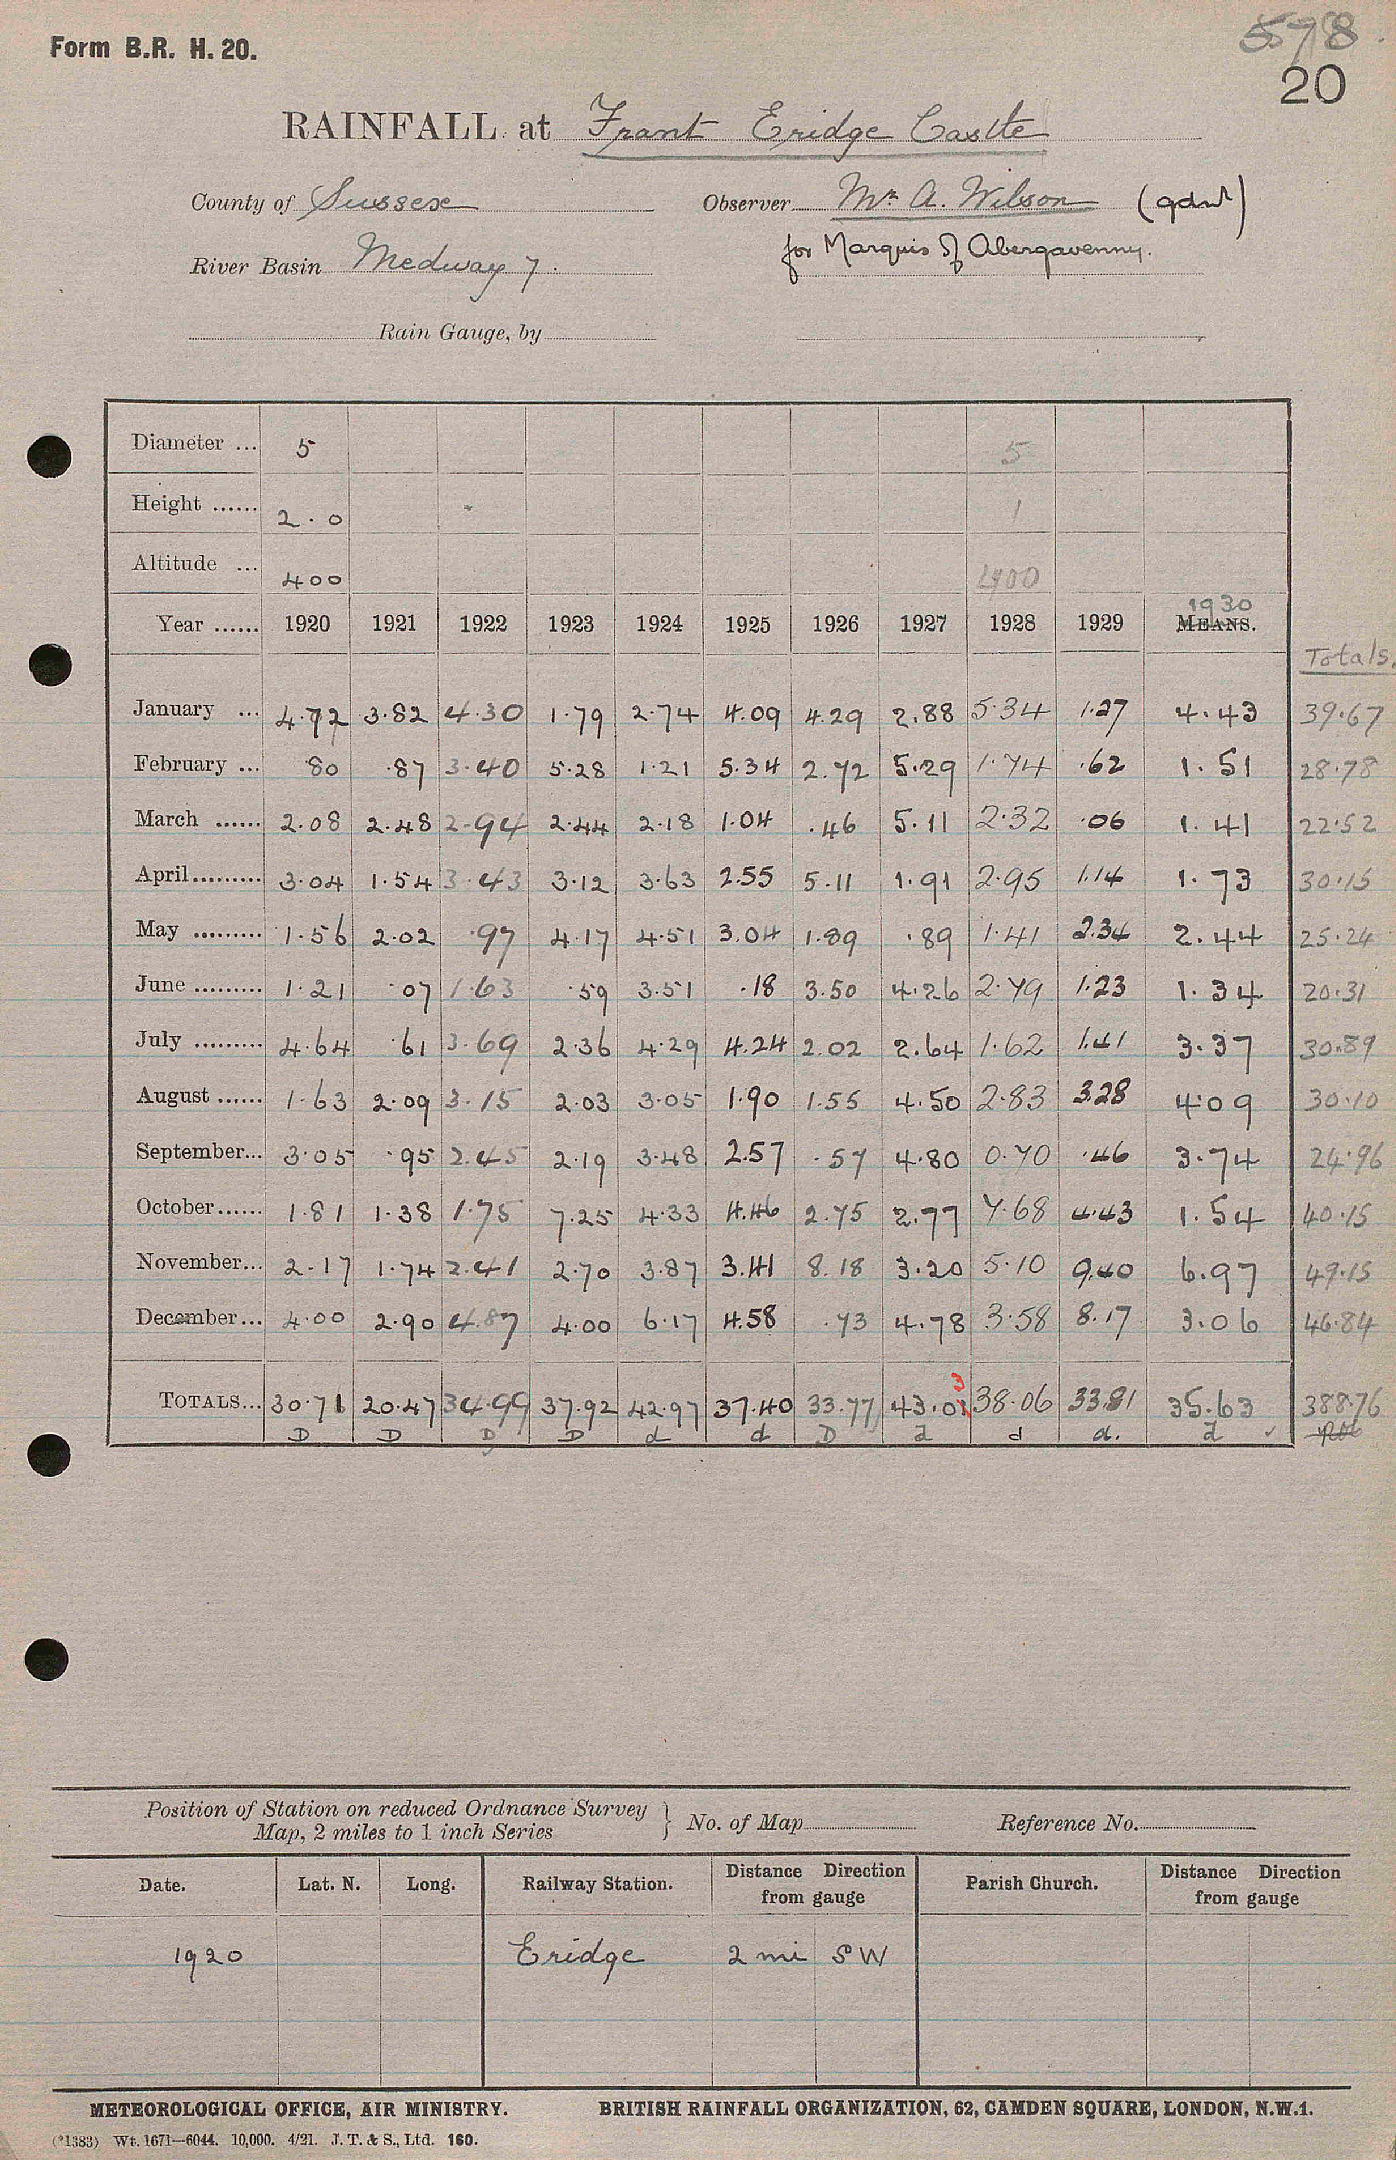 Form B.R. H. 20.
578
20
RAINFALL at Frant Eridge Castle
County of Sussex Observer Mr A. Wilson (gdnr)
River Basin Medway 7. for Marquis of Abergavenny.
Rain Gauge, by
Diameter ... 5 5
Height ...... 2.0 1
Altitude ... 400 400
1930
Year ...... 1920 1921 1922 1923 1924 1925 1926 1927 1928 1929 MEANS.
Totals.
January ... 4.72 3.82 4.30 1.79 2.74 4.09 4.29 2.88 5.34 1.27 4.43 39.67
February ... .80 .87 3.40 5.28 1.21 5.34 2.72 5.29 1.74 .62 1.51 28.78
March ...... 2.08 2.48 2.94 2.44 2.18 1.04 .46 5.11 2.32 .06 1.41 22.52
April......... 3.04 1.54 3.43 3.12 3.63 2.55 5.11 1.91 2.95 1.14 1.73 30.15
May ......... 1.56 2.02 .97 4.17 4.51 3.04 1.89 .89 1.41 2.34 2.44 25.24
June ......... 1.21 .07 1.63 .59 3.51 .18 3.50 4.26 2.79 1.23 1.34 20.31
July ......... 4.64 .61 3.69 2.36 4.29 4.24 2.02 2.64 1.62 1.41 3.37 30.89
August ...... 1.63 2.09 3.15 2.03 3.05 1.90 1.55 4.50 2.83 3.28 4.09 30.10
September... 3.05 .95 2.45 2.19 3.48 2.57 .57 4.80 0.70 .46 3.74 24.96
October...... 1.81 1.38 1.75 7.25 4.33 4.46 2.75 2.77 7.68 4.43 1.54 40.15
November... 2.17 1.74 2.41 2.70 3.87 3.41 8.18 3.20 5.10 9.40 6.97 49.15
December... 4.00 2.90 4.87 4.00 6.17 4.58 .73 4.78 3.58 8.17 3.06 46.84
3
TOTALS... 30.71 20.47 34.99 37.92 42.97 37.40 33.77 43.01 38.06 33.81 35.63 388.76
D D D D d d D d d d. d ✓
Position of Station on reduced Ordnance Survey
Map, 2 miles to 1 inch Series } No. of Map Reference No.
Date. Lat. N. Long. Railway Station. Distance Direction from gauge Parish Church. Distance Direction from gauge
1920 Eridge 2 mi SW
METEOROLOGICAL OFFICE, AIR MINISTRY. BRITISH RAINFALL ORGANIZATION, 62, CAMDEN SQUARE, LONDON, N.W.1.
(*1383) Wt. 1671—6044. 10,000. 4/21. J. T. & S., Ltd. 160.